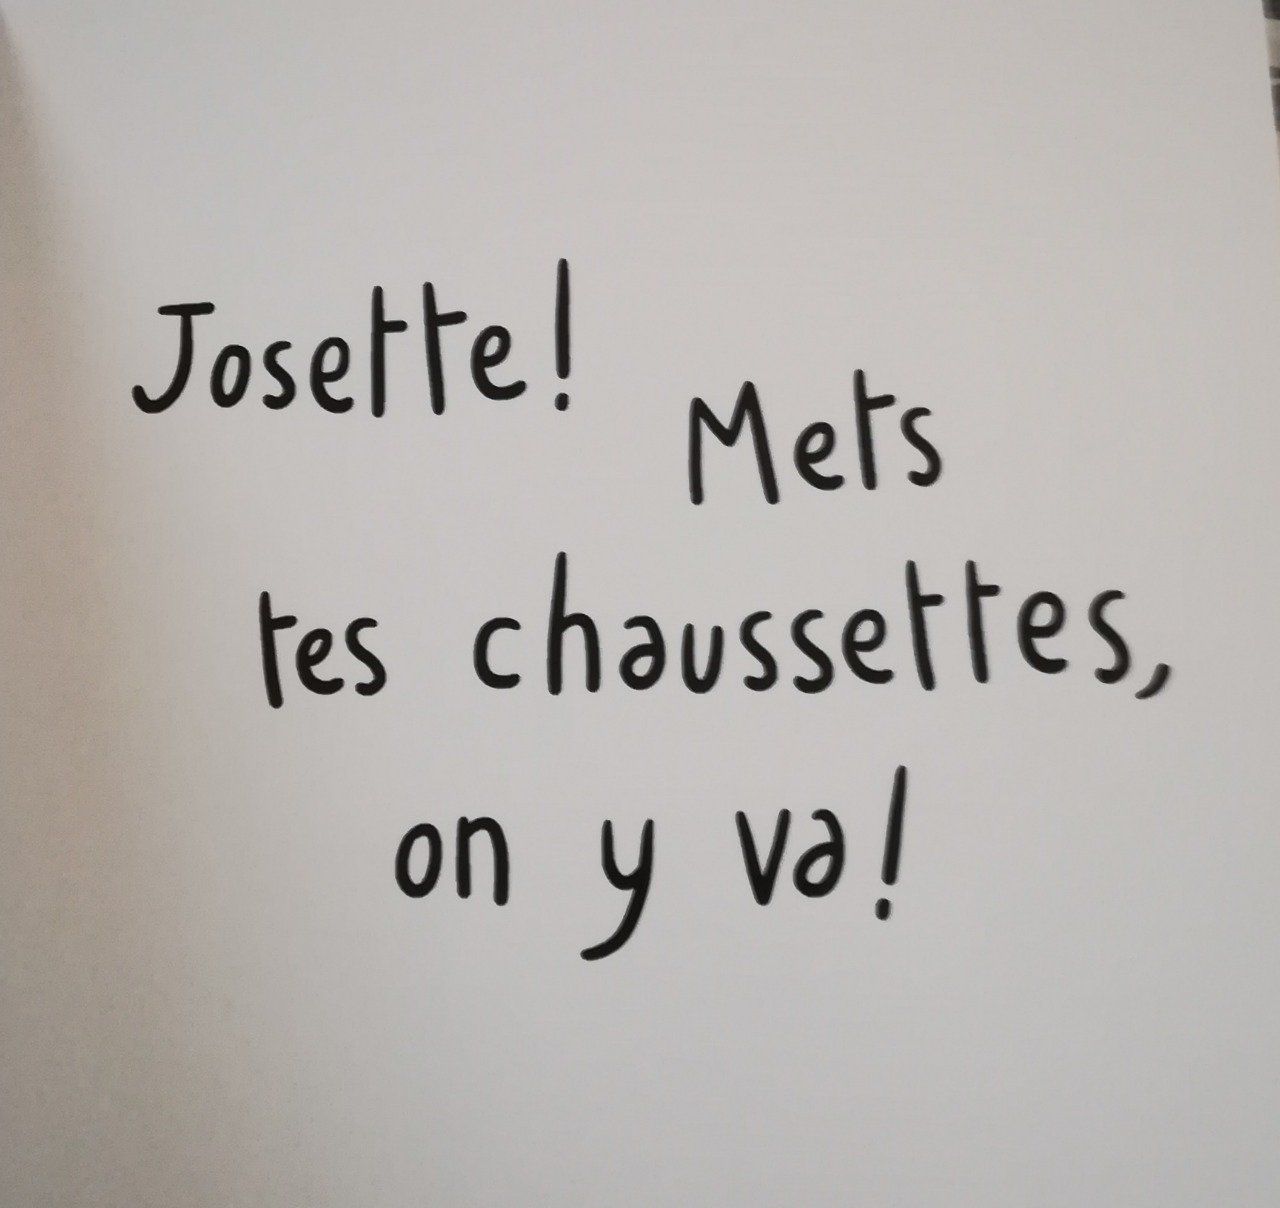 Josette!
Mets
tes chaussettes,
on y va!